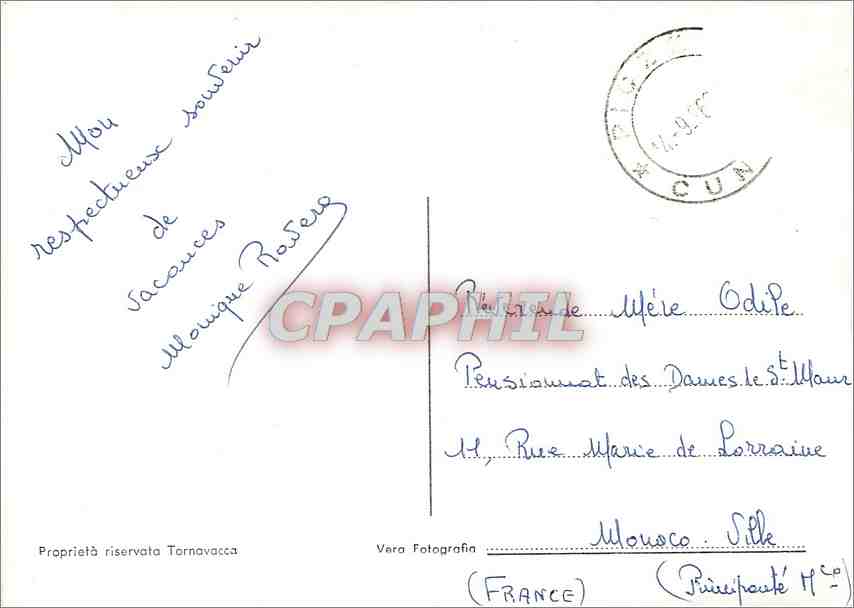 Mon
respectueux souvenir
de
vacances
Monique Rovera
CUN
CPAPHIL
Révérende Mére Odile
Pensionnat des Dames de St Maur
11, Rue Marie de Lorraine
Monaco-Ville
(FRANCE) (Principauté Mco)
Proprietà riservata Tornavacca
Vera Fotografia